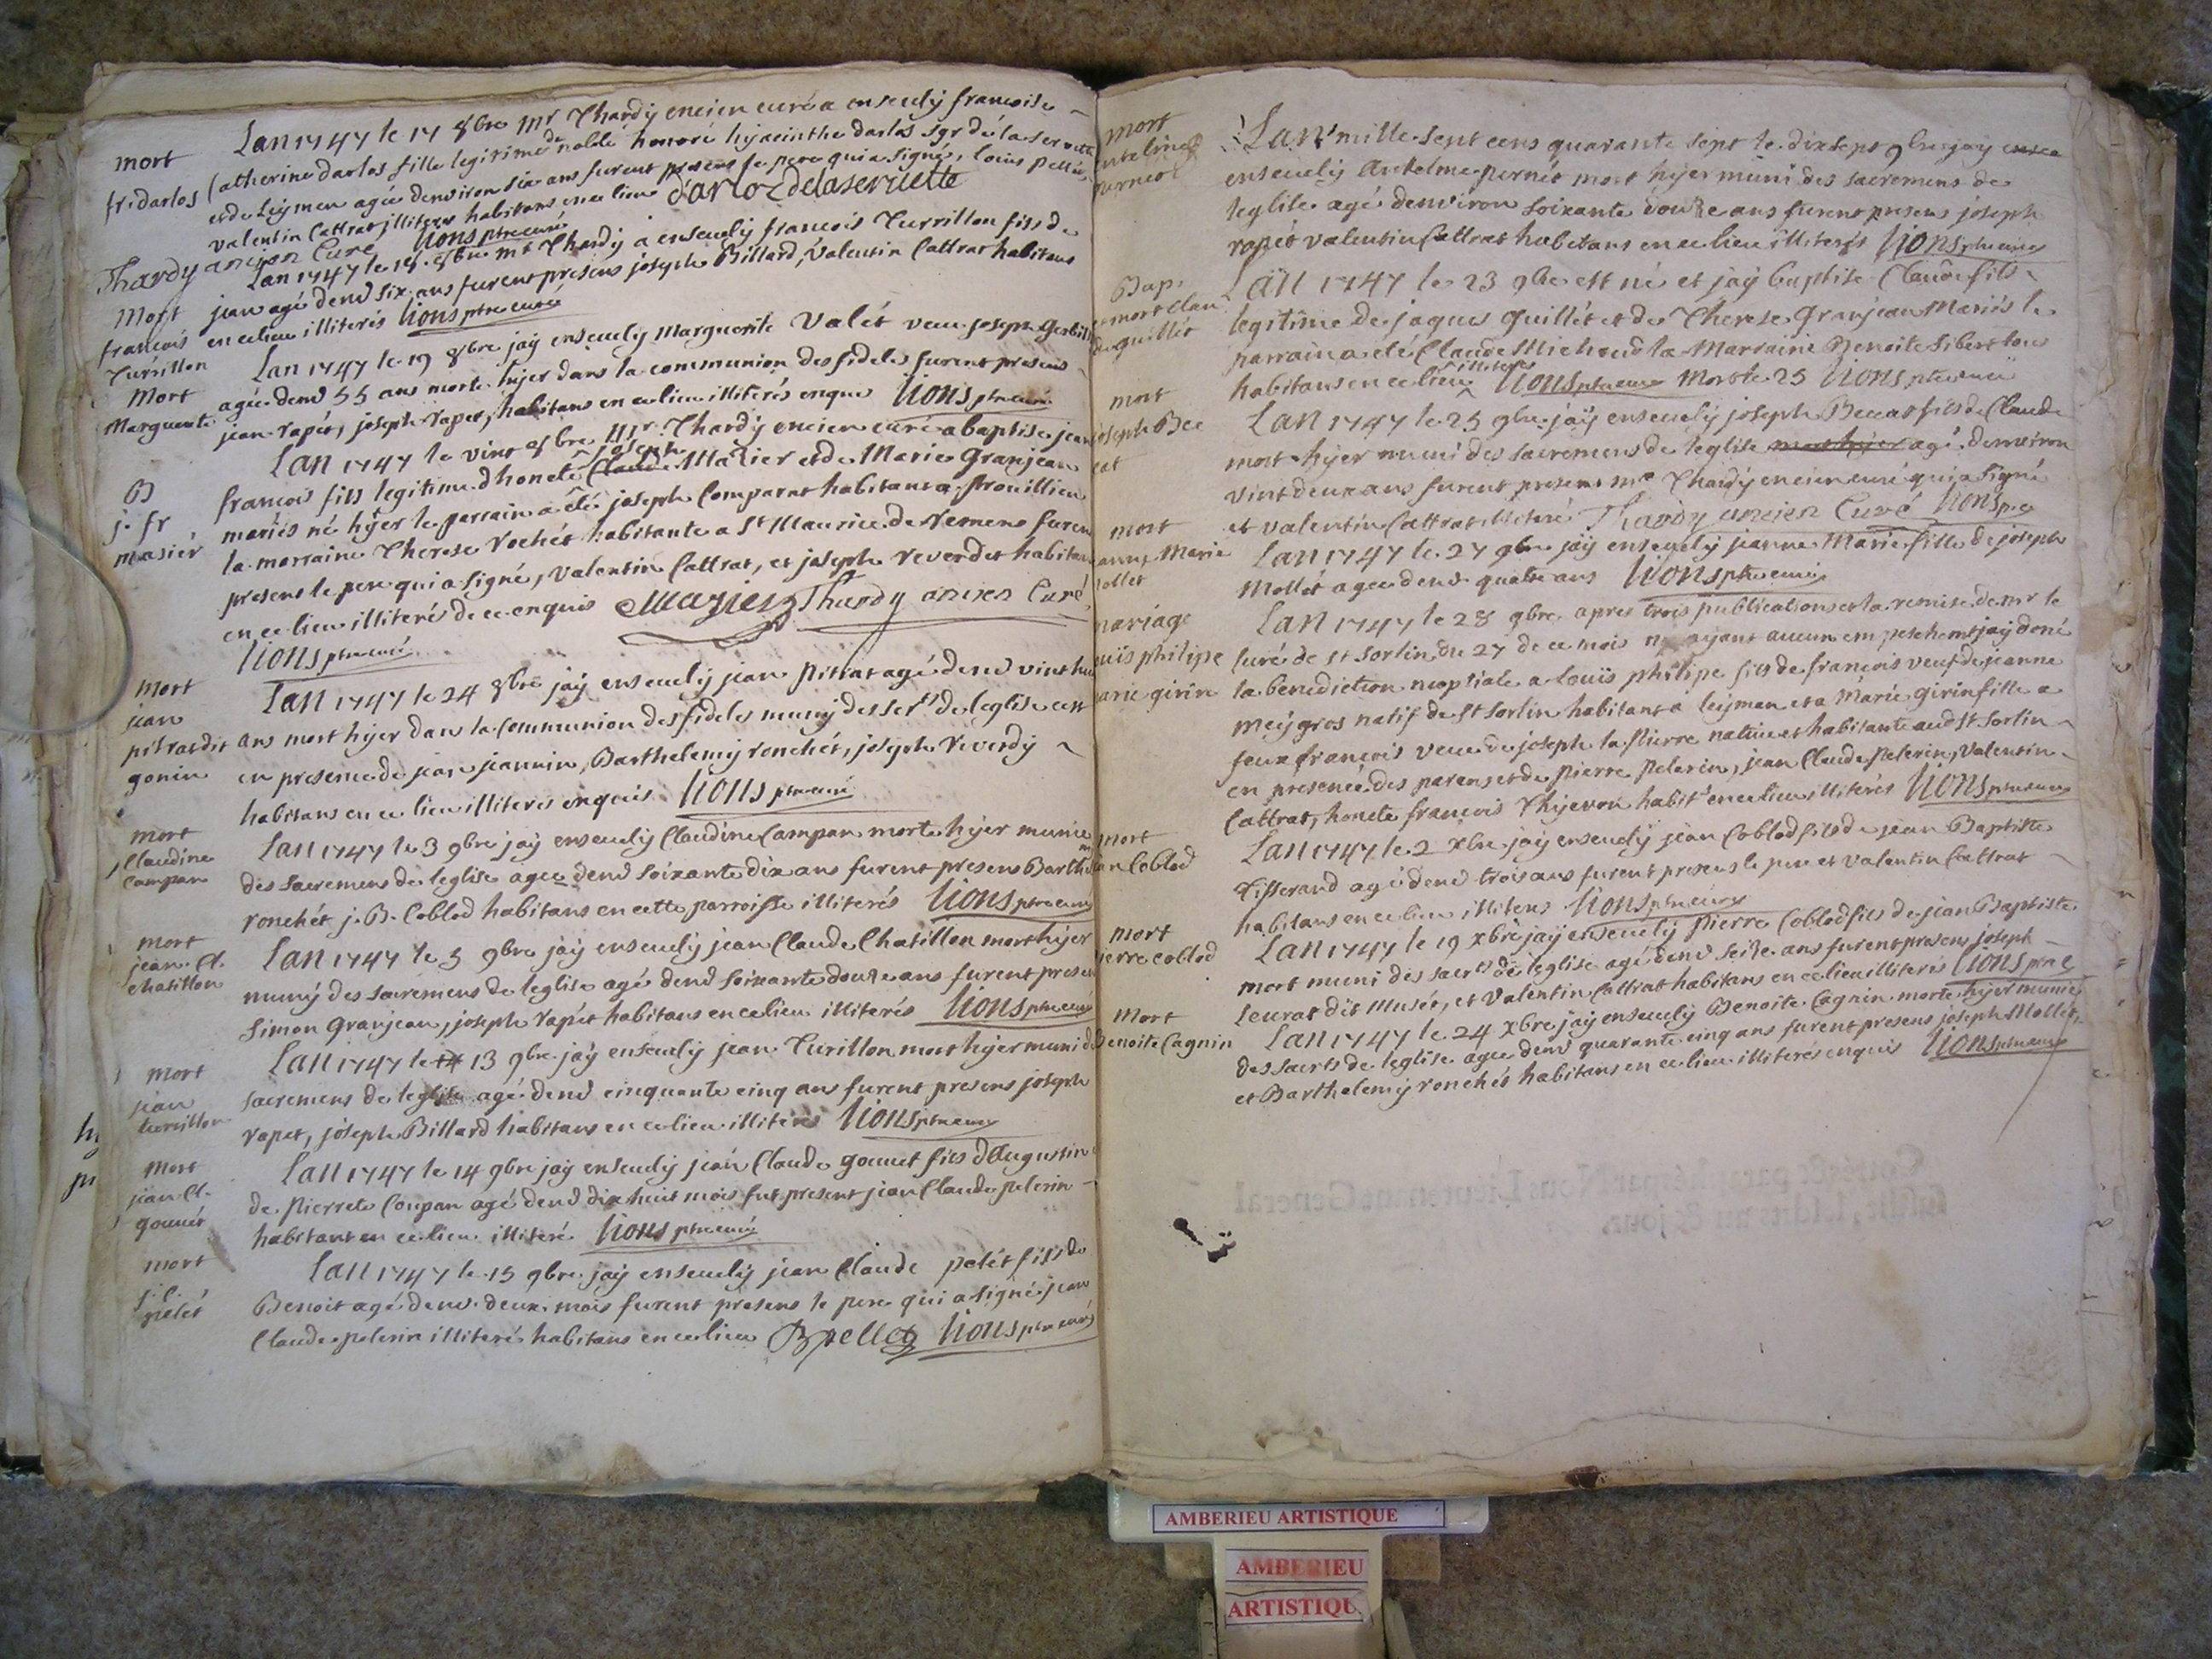 mort
fr. darlos
Lan 1747 le 17 8bre mr Thardy encien curé a ensevely francoise
Catherine darlos fille legitime de noble honoré hyacinthe darlos sgr de la servette
et de Leymen agée denviron six ans furent presens le pere qui a signé, louis pellé
valentin Cattrat illiteres habitans en ce lieu darloz delaseruette
Thardy ancien Curé Lions ptre curé
Mort
francois
Turrillon
Lan 1747 le 8bre mr Thardy a ensevely francois Turrillon fils de
jean agé denv six ans furent presens joseph Billard, valentin Cattrat habitans
en ce lieu illiterés Lions ptre curé
Mort
Marguerite
Lan 1747 le 19 8bre jaÿ ensevely Marguerite Valét veuv joseph
agée denv 55 ans morte hyer dans la communion des fideles furent presens
jean rapét, joseph rapet, habitans en ce lieu illiterés enquis Lions ptre curé
B
j. fr
masiér
Lan 1747 le vint 8bre Mr Thardy encien curé a baptisé jean
francois fils legitime dhonete joseph Claude Mazier et de Marie Granjean
mariés né hÿer le parrain a été joseph Comparat habitant a proüillieu
la marraine Therese rochét habitante a St Maurice de remens furen
presens le pere qui a signé, valentin Cattrat, et joseph reverdet habitans
en ce lieu illiterés de ce enquis Maziez Thardy ancien Curé
Lions ptre curé
Mort
jean
pitrat dit
gonin
Lan 1747 le 24 8bre jaÿ ensevely jean Pitrat agé denv vint hui
ans mort hÿer dans la Communion des fideles muny des Sts de leglise cest
en presence de jean jeannin, Barthelemÿ ronchét, joseph reverdÿ
habitans en ce lieu illiterés enquis Lions ptre curé
Mort
Claudine
Campan
Lan 1747 le 3 9bre jaÿ ensevelÿ Claudine Campan morte hÿer munie
des sacremens de leglise agée denv soixante dix ans furent presens Barthelm
ronchét j. B. Coblod habitans en cette parroisse illiterés Lions ptre curé
Mort
jean. Cl.
chatillon
Lan 1747 le 5 9bre jaÿ ensevely jean Claude Chatillon mort hÿer
munÿ des sacremens de leglise agé denv soixante douze ans furent presen
Simon Granjean, joseph rapét habitans en ce lieu illiterés Lions ptre curé
Mort
jean
turrillon
Lan 1747 le 13 9bre jaÿ ensevely jean Turillon mort hÿer muni de
sacremens de leglise agé denv cinquante cinq ans furent presens joseph
rapet, joseph Billard habitans en ce lieu illiterés Lions ptre curé
Mort
jean Cl.
gounét
Lan 1747 le 14 9bre jaÿ ensevelÿ jean Claude gounet fils dAugustin
de Pierrete Coupan agé denv dix huit mois fut present jean Claude pelerin
habitant en ce lieu illiteré Lions ptre curé
mort
j. C.
pelét
Lan 1747 le 15 9bre jaÿ ensevelÿ jean Claude pelét fils de
Benoit agé denv. deux mois furent presens le pere qui a signé jean
Claude pelerin illiteré habitans en ce lieu B pellet Lions ptre curé
mort
pernet
Lan mille sept cens quarante sept le dixsept 9bre jay
ensevely Anthelme pernét mort hÿer muni des sacremens de
leglise agé denviron soixante douze ans furent presens joseph
rapét valentin Cattrat habitans en ce lieu illiterés Lions ptre curé
Bap.
et mort Clau
de guillét
Lan 1747 le 23 9bre est né et jaÿ baptisé Claude fils
legitime de jaques Guillét et de Therese Granjean Mariés le
parrain a été Claude Michoud la Marraine Benoite Sibert tou
habitans en ce lieu illiterés Lions ptre curé Mort le 25 Lions ptre curé
mort
joseph Bec
cat
Lan 1747 le 25 9bre jaÿ ensevely joseph Beccat fils de Claude
mort hÿer muni des sacremens de leglise mort hÿer agé denviron
vint deux ans furent presens mr Thardÿ encien curé qui a signé
et valentin Cattrat illiteré Thardy ancien Curé Lions p.
mort
anne Marie
mollet
Lan 1747 le 27 9bre jaÿ ensevelÿ jeanne Marie fille de joseph
Mollét agée denv quatre ans Lions ptre curé
mariage
ouis philipe
arie girin
Lan 1747 le 28 9bre apres trois publications et la remise de mr le
Curé de St Sorlin du 27 de ce mois nÿ aÿant aucun empeschemt jaÿ doné
la benediction nuptiale a Louïs philipe fils de francois veuf de jeanne
Meÿgros natif de St Sorlin habitant a leÿmen et a Marie girin fille a
feux francois veuve de joseph la Pierre native et habitante aud St Sorlin
en presence des parens et de pierre pelerin, jean Claude Pelerin, Valentin
Cattrat, honete francois Thÿevon habit en ce lieu illiterés Lions ptre curé
mort
an Coblod
Lan 1747 le 2 xbre jaÿ ensevelÿ jean Coblod fils de jean Baptiste
Tisserand agé denv trois ans furent presens le pere et valentin Cattrat
habitans en ce lieu illiterés Lions ptre curé
mort
ierre coblod
Lan 1747 le 19 xbre jaÿ ensevelÿ Pierre Coblod fils de jean Baptiste
mort muni des sacrts de leglise agé denv seize ans furent presens joseph
Leurat dit Musét, et Valentin Cattrat habitans en ce lieu illiterés Lions ptre c
Mort
Benoite Cagnin
Lan 1747 le 24 xbre jaÿ ensevelÿ Benoite Cagnin morte hÿer munie
des sacrts de leglise agée denv quarante cinq ans furent presens joseph Mollét,
et Barthelemÿ ronchét habitans en ce lieu illiterés enquis Lions ptre curé
AMBERIEU ARTISTIQUE
AMBERIEU
ARTISTIQU